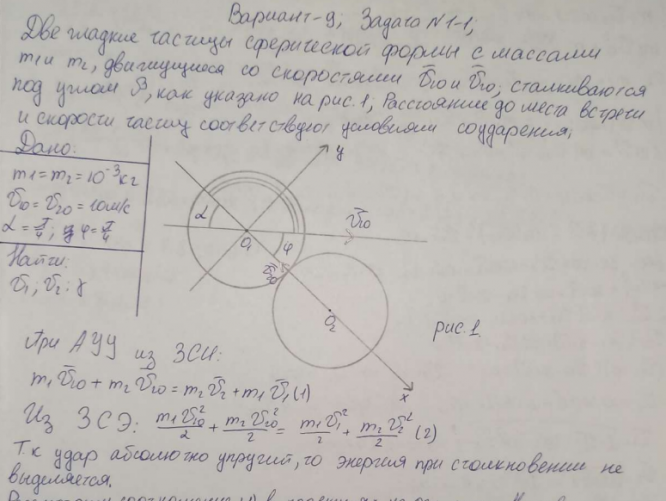 Вариант-9; Задача N1-1;
Две гладкие частицы сферической формы с массами
m1 и m2, движущиеся со скоростями v̄10 и v̄20, сталкиваются
под углом β, как указано на рис. 1, Расстояние до места встречи
и скорости частиц соответствуют условиям соударения,
Дано:
m1 = m2 = 10⁻³ кг
v̄10 = v̄20 = 10 м/с
α = π/4; φ = π/4
Найти:
v̄1; v̄2; γ
y
α
v̄10
O1
φ
v̄20
O2
рис. 1.
x
При АУУ из ЗСИ:
m1v̄10 + m2v̄20 = m2v̄2 + m1v̄1 (1)
Из ЗСЭ: m1v̄10²/2 + m2v̄20²/2 = m1v̄1²/2 + m2v̄2²/2 (2)
Т.к удар абсолютно упругий, то энергия при столкновении не
выделяется.